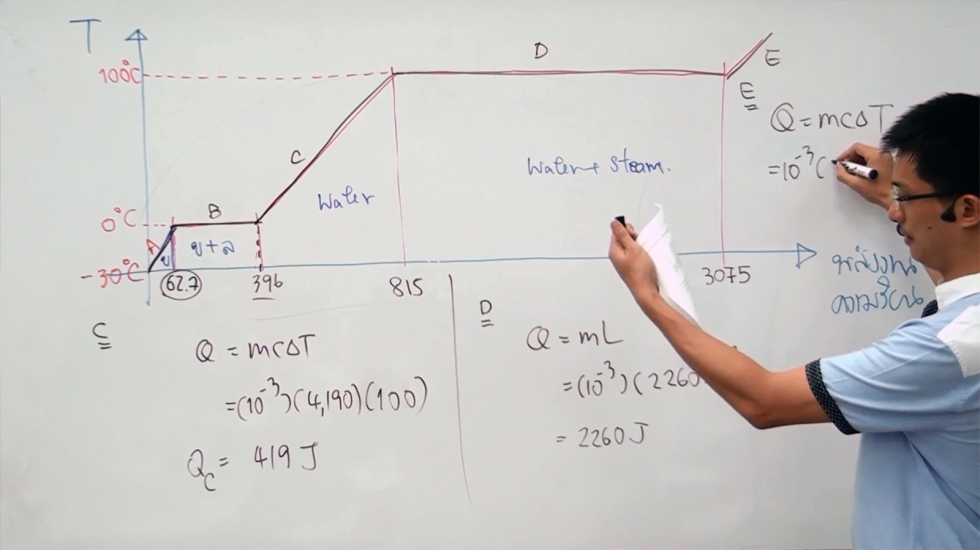 T
100°C
D
E
E
Q = mcΔT
= 10⁻³(
C
Water
Water + Steam.
0°C
B
A
ข
ข+ล
-30°C
62.7
396
815
3075
พลังงาน
ความร้อน
C
Q = mcΔT
= (10⁻³)(4,190)(100)
Q_C = 419 J
D
Q = mL
= (10⁻³)(2260
= 2260 J